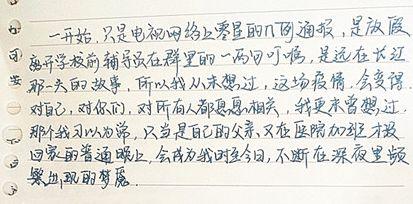 一开始,只是电视网络上零星的几例通报,是放假
离开学校前辅导员在群里的一两句叮嘱,是远在长江
那一头的故事,所以我从未想过,这场疫情,会变得
对自己,对你们,对所有人都息息相关,我更未曾想过,
那个我习以为常,只当是自己的父亲又在医院加班才没
回家的普通晚上,会成为我时至今日,不断在深夜里频
繁出现的梦魇.